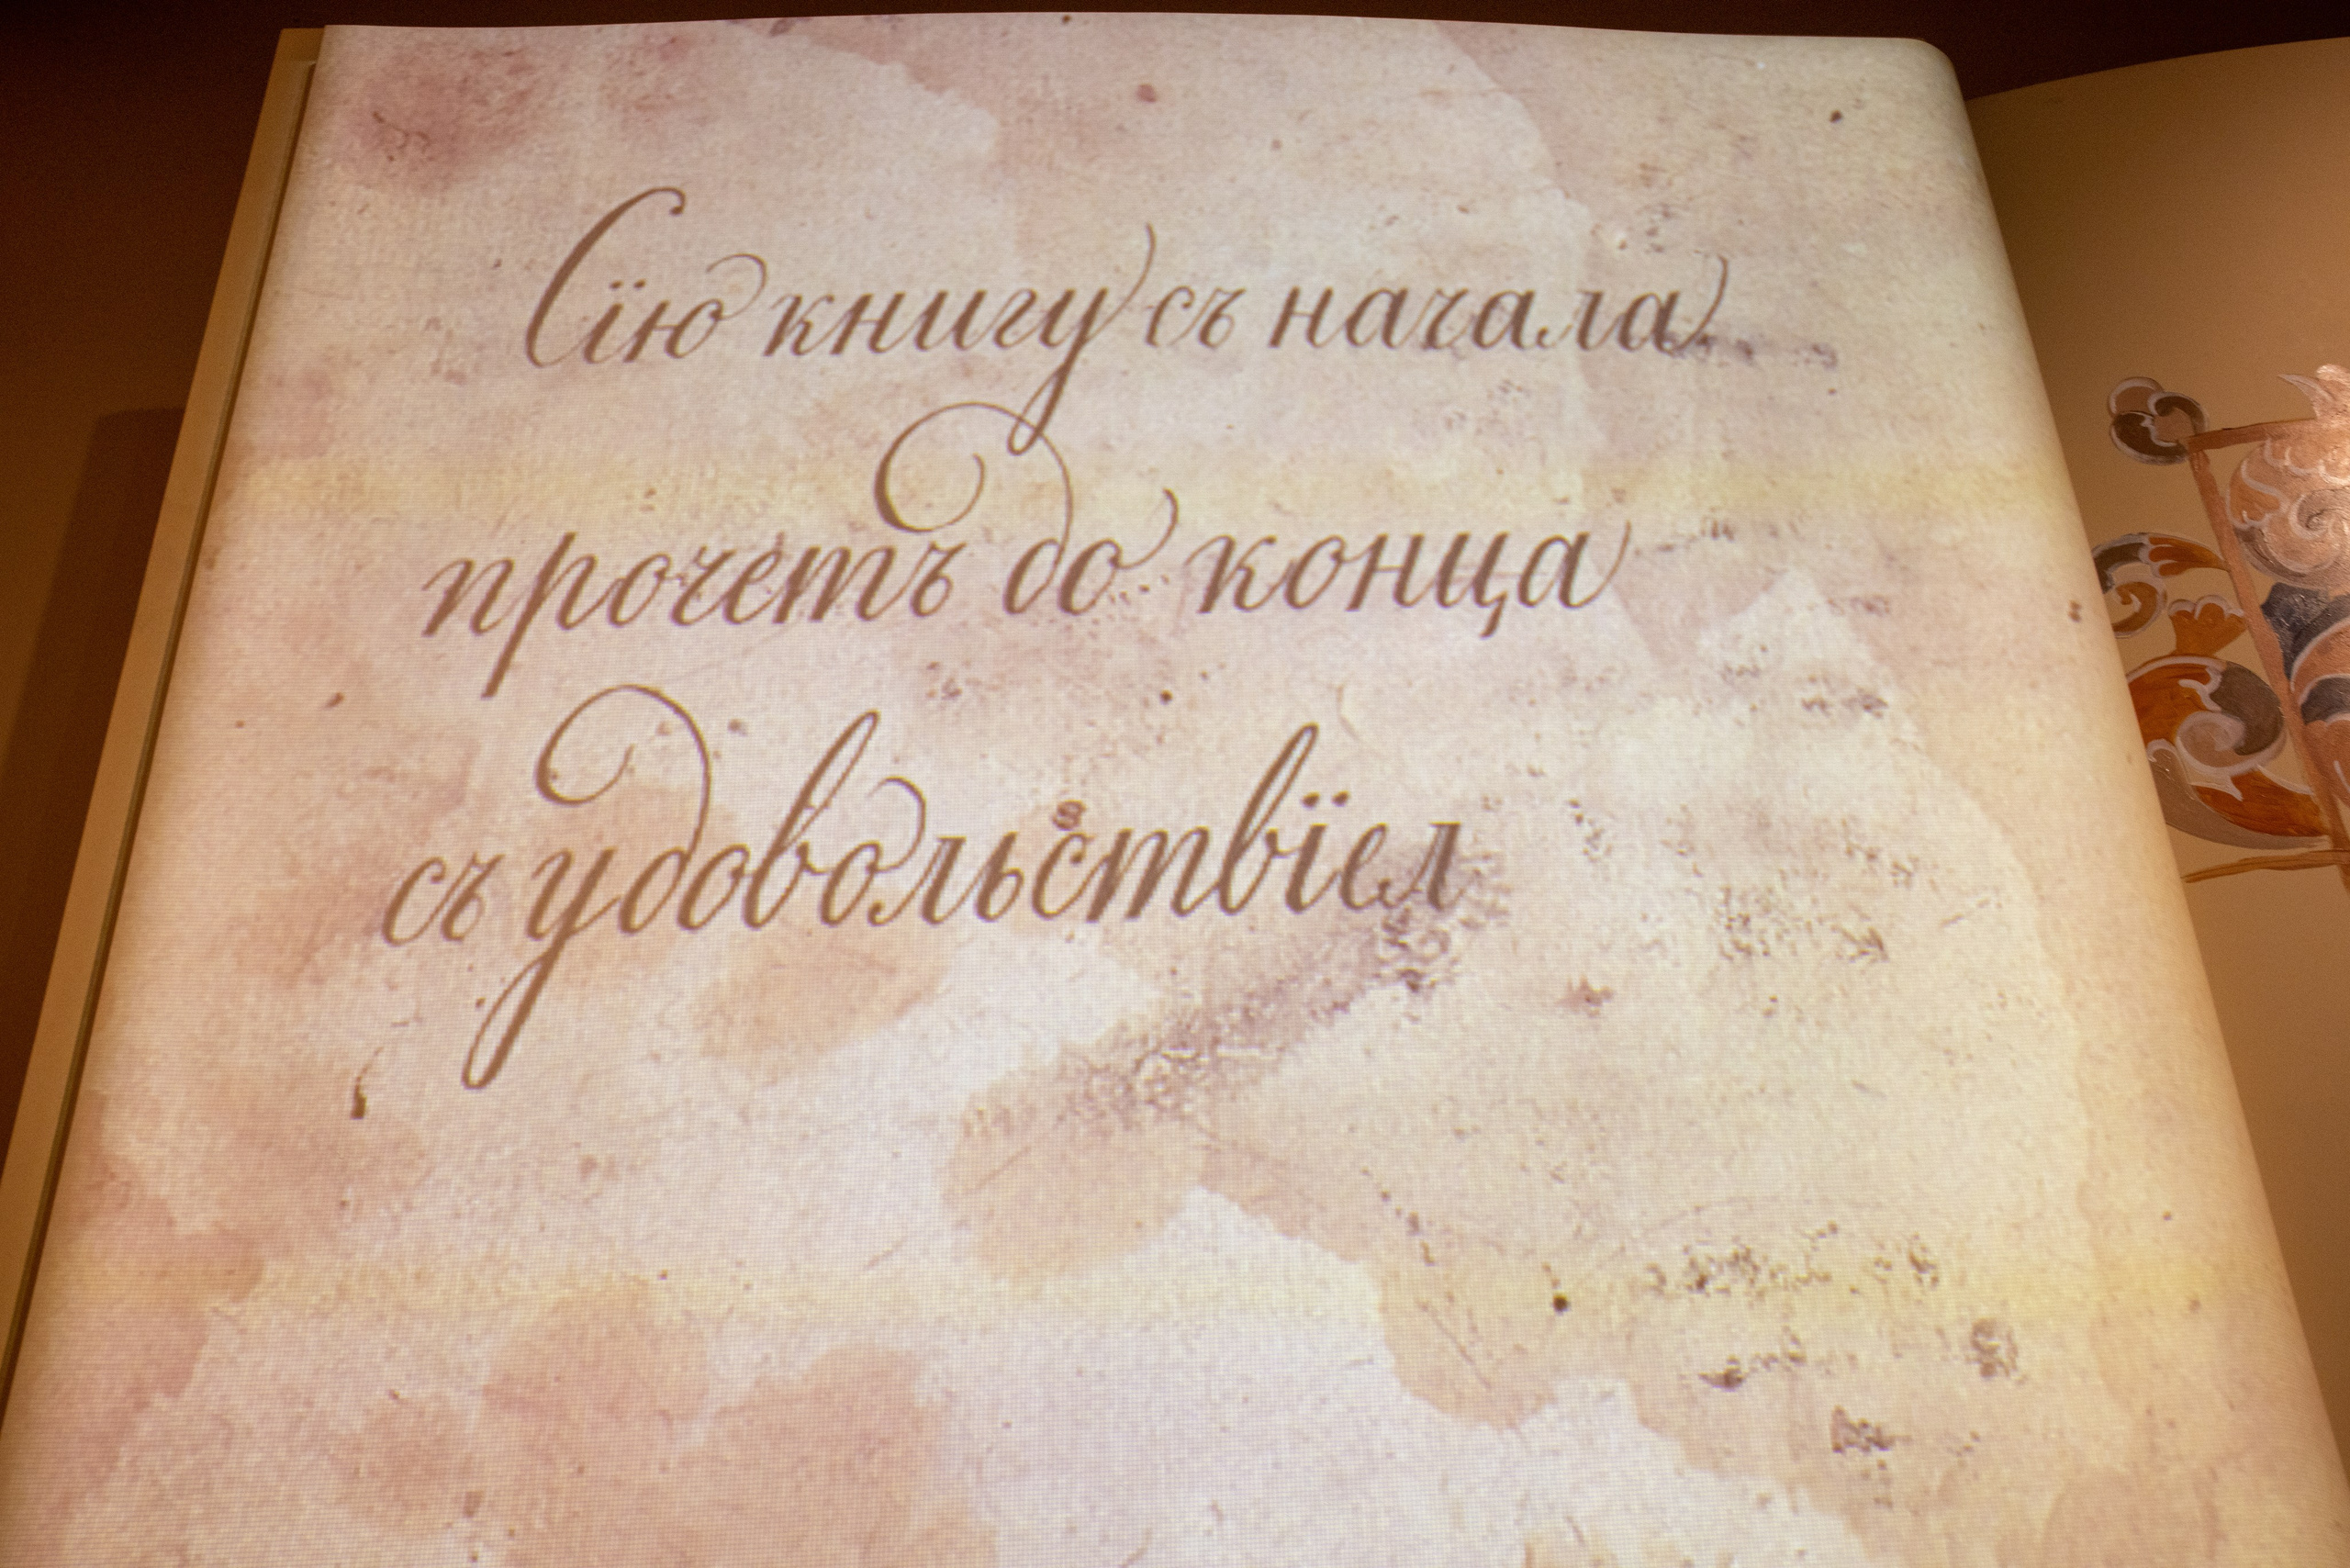 Сїю книгу съ начала
прочетъ до конца
съ удовольствїел